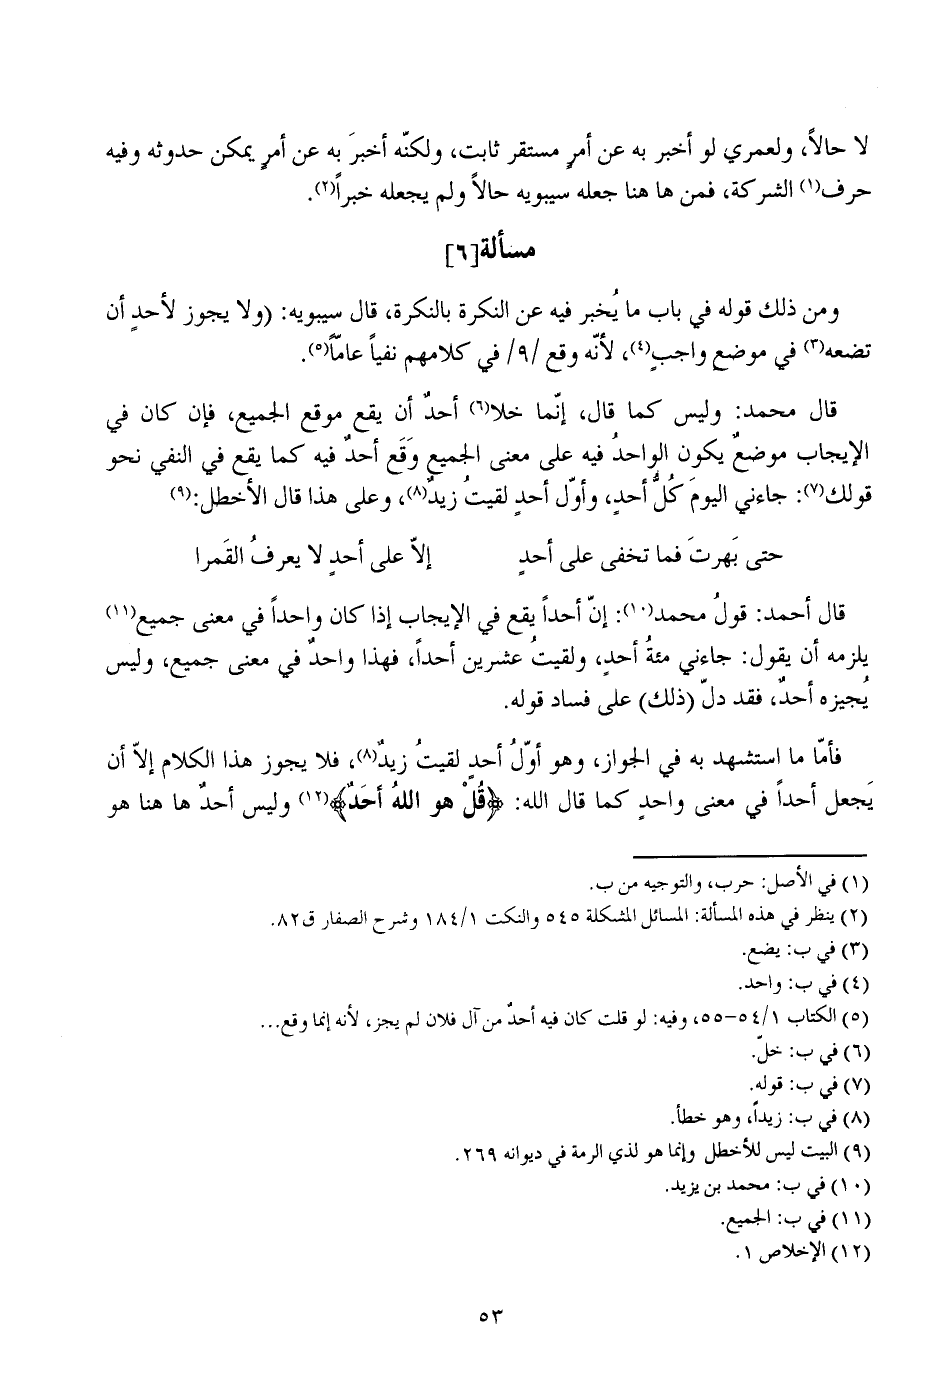 لا حالاً، ولعمري لو أخبر به عن أمرٍ مستقر ثابت، ولكنّه أخبرَ به عن أمرٍ يمكن حدوثه وفيه
حرف(١) الشركة، فمن ها هنا جعله سيبويه حالاً ولم يجعله خبراً(٢).
مسألة[٦]
ومن ذلك قوله في باب ما يُخبر فيه عن النكرة بالنكرة، قال سيبويه: (ولا يجوز لأحدٍ أن
تضعه(٣) في موضع واجبٍ(٤)، لأنّه وقع /٩/ في كلامهم نفياً عامّاً(٥).
قال محمد: وليس كما قال، إنّما خلا(٦) أحدٌ أن يقع موقع الجميع، فإن كان في
الإيجاب موضعٌ يكون الواحدُ فيه على معنى الجميع وَقَع أحدٌ فيه كما يقع في النفي نحو
قولك(٧): جاءني اليومَ كُلُّ أحدٍ، وأوّل أحدٍ لقيتُ زيدٌ(٨)، وعلى هذا قال الأخطل:(٩)
حتى بَهرتَ فما تخفى على أحدٍ إلاّ على أحدٍ لا يعرفُ القَمرا
قال أحمد: قولُ محمد(١٠): إنّ أحداً يقع في الإيجاب إذا كان واحداً في معنى جميع(١١)
يلزمه أن يقول: جاءني مئةُ أحدٍ، ولقيتُ عشرين أحداً، فهذا واحدٌ في معنى جميع، وليس
يُجيزه أحدٌ، فقد دلّ (ذلك) على فساد قوله.
فأمّا ما استشهد به في الجواز، وهو أوّلُ أحدٍ لقيتُ زيدٌ(٨)، فلا يجوز هذا الكلام إلاّ أن
يَجعل أحداً في معنى واحدٍ كما قال الله: ﴿قُلْ هو اللهُ أحَدٌ﴾(١٢) وليس أحدٌ ها هنا هو
(١) في الأصل: حرب، والتوجيه من ب.
(٢) ينظر في هذه المسألة: المسائل المشكلة ٥٤٥ والنكت ١٨٤/١ وشرح الصفار ق٨٢.
(٣) في ب: يضع.
(٤) في ب: واحد.
(٥) الكتاب ٥٤/١-٥٥، وفيه: لو قلت كان فيه أحدٌ من آل فلان لم يجز، لأنه إنما وقع...
(٦) في ب: خلّ.
(٧) في ب: قوله.
(٨) في ب: زيداً، وهو خطأ.
(٩) البيت ليس للأخطل وإنما هو لذي الرمة في ديوانه ٢٦٩.
(١٠) في ب: محمد بن يزيد.
(١١) في ب: الجميع.
(١٢) الإخلاص ١.
٥٣